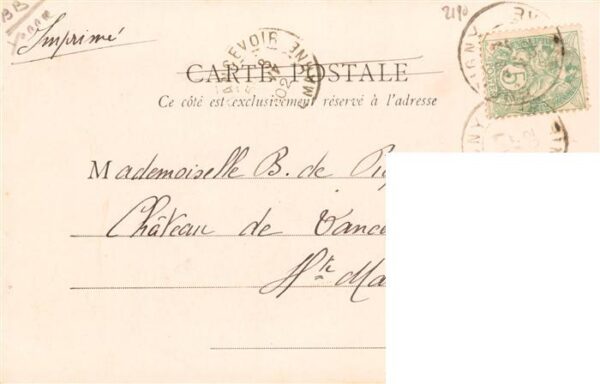 2190
BB
Imprimé
CARTE POSTALE
Ce côté est exclusivement réservé à l'adresse
Mademoiselle B. de
Château de Vance
Hte Ma
5
02